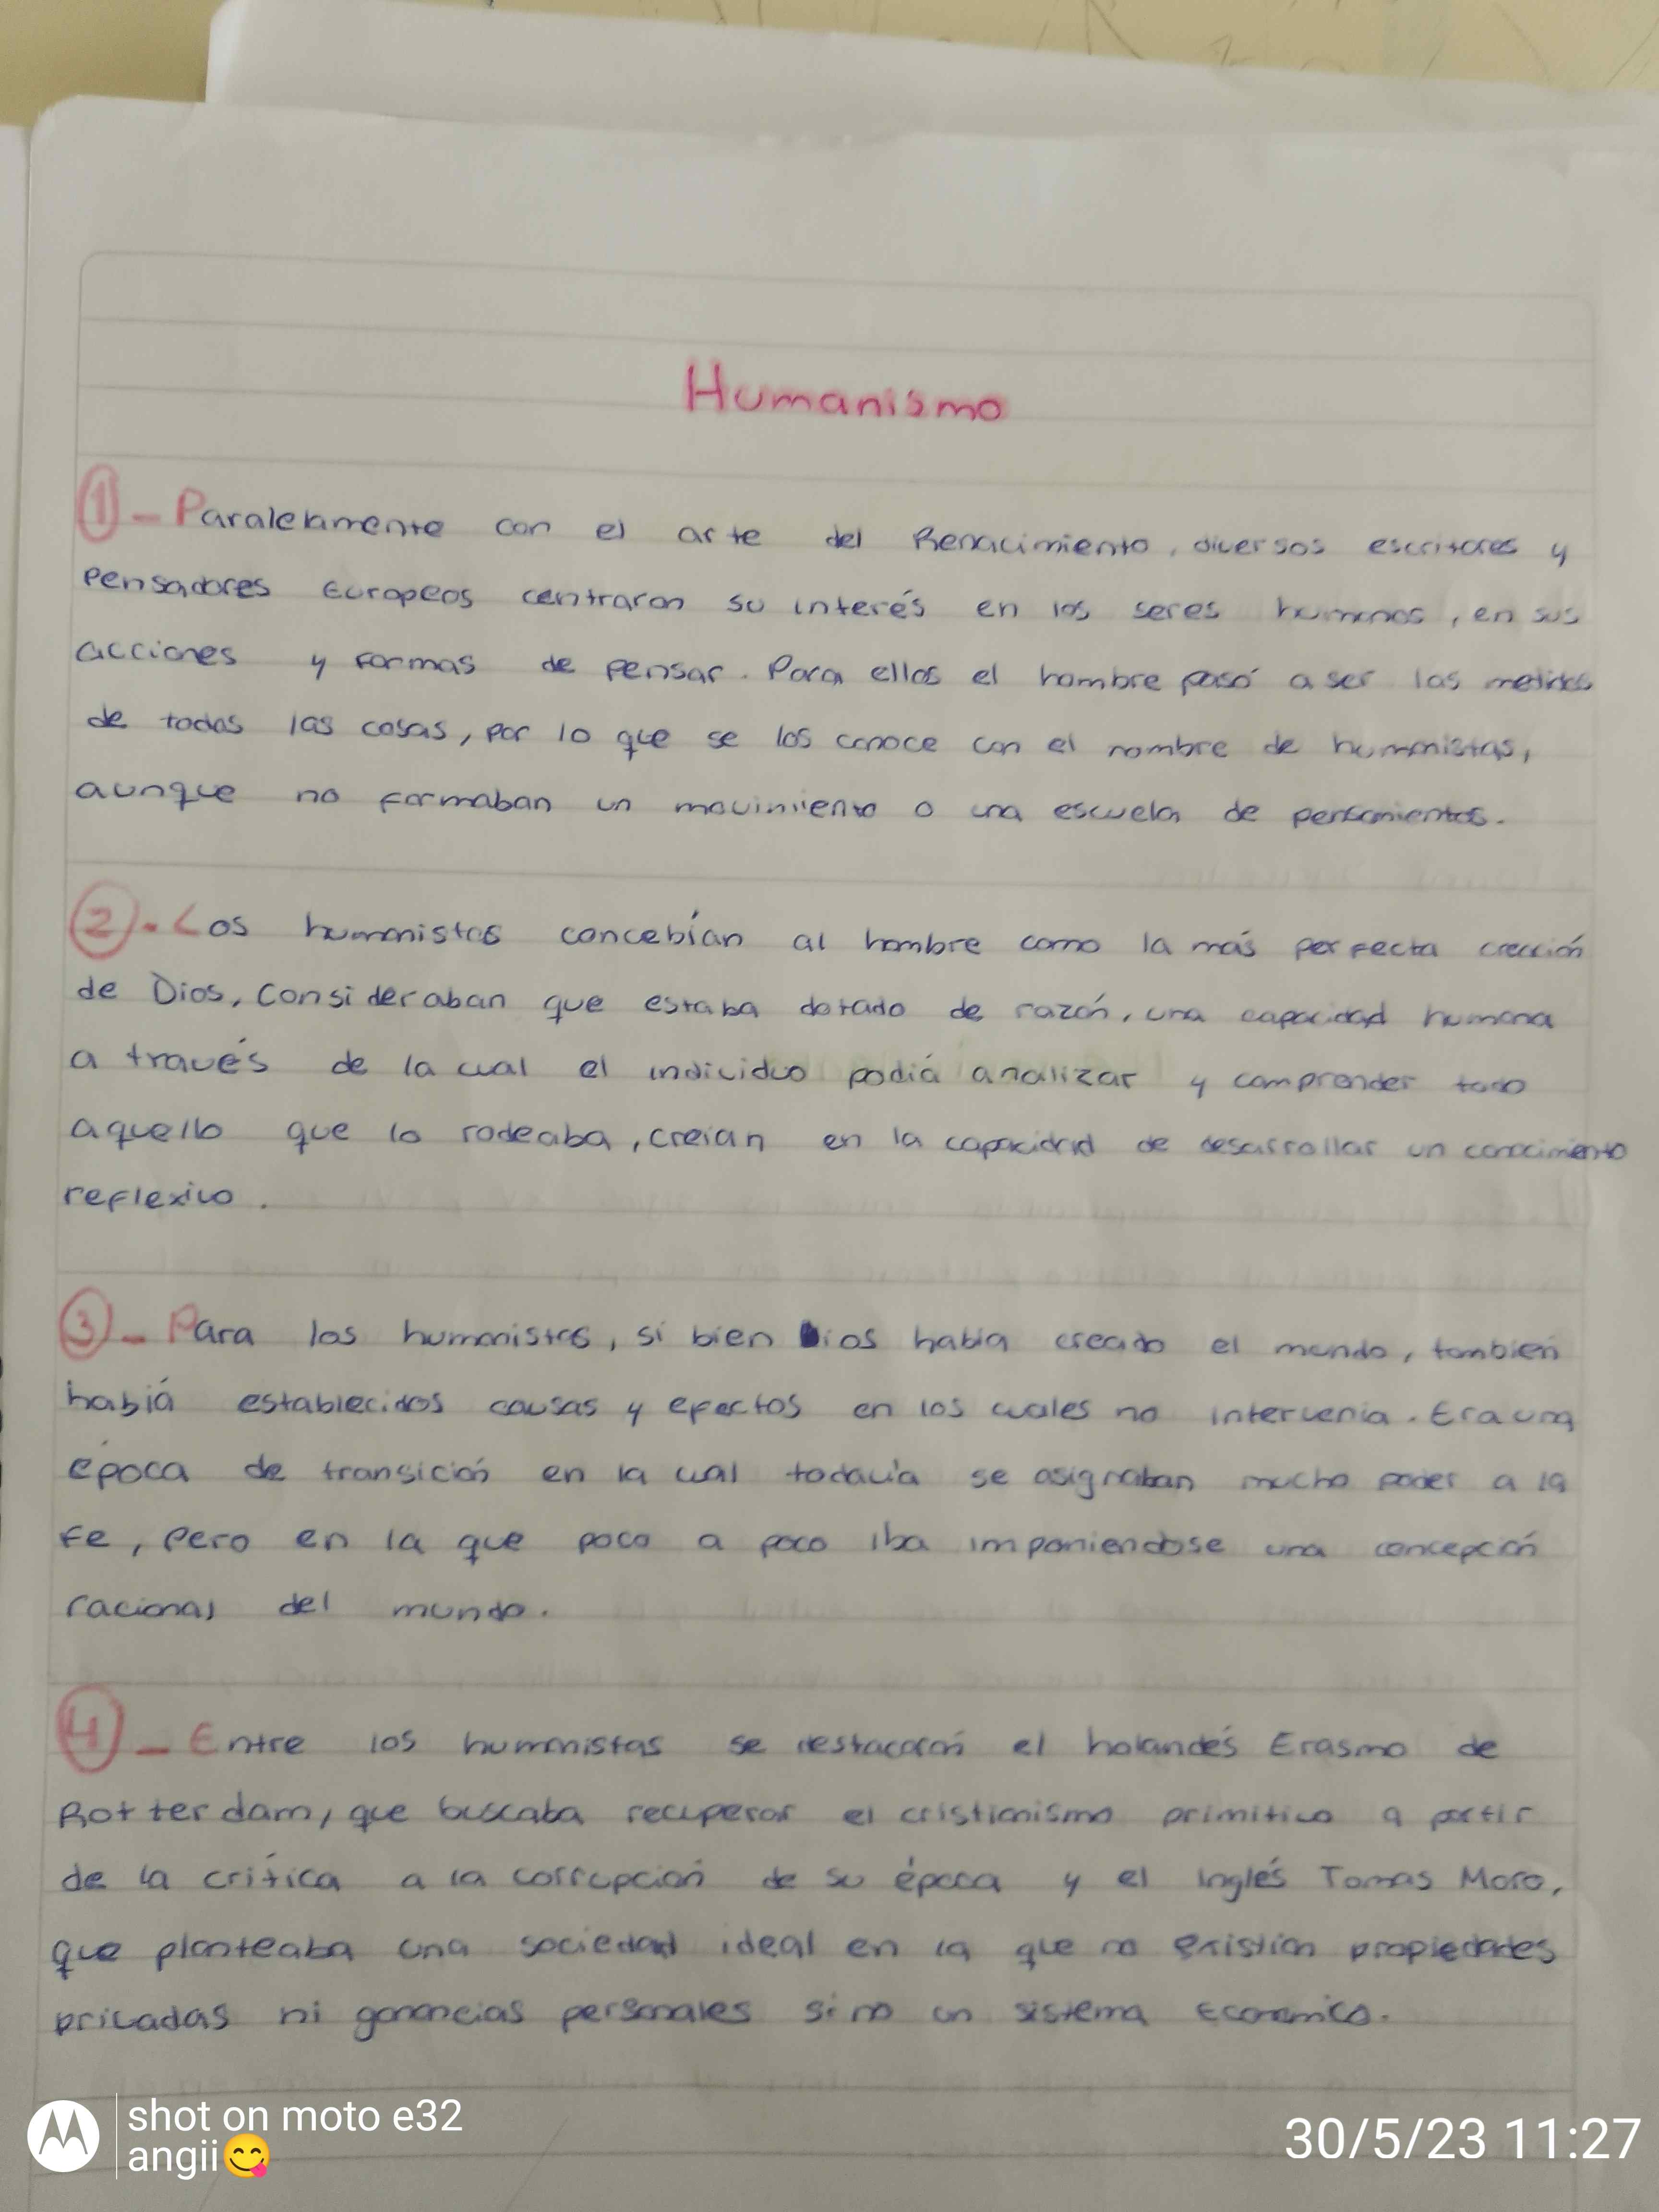 Humanismo
①- Paralelamente con el arte del Renacimiento, diversos escritores y
pensadores Europeos centraron su interés en los seres humanos, en sus
acciones y formas de pensar. Para ellos el hombre pasó a ser las medidas
de todas las cosas, por lo que se los conoce con el nombre de humanistas,
aunque no formaban un movimiento o una escuela de pensamientos.
②. Los humanistas concebían al hombre como la más perfecta creación
de Dios, consideraban que estaba dotado de razón, una capacidad humana
a través de la cual el individuo podiá analizar y comprender todo
aquello que lo rodeaba, creian en la capacidad de desarrollar un conocimiento
reflexivo.
③- Para los humanistas, si bien Dios habia creado el mundo, también
habiá establecidos causas y efectos en los cuales no intervenia. Era una
época de transición en la cual todavía se asignaban mucho poder a la
fe, pero en la que poco a poco iba imponiendose una concepción
racional del mundo.
④- Entre los humanistas se destacarón el holandés Erasmo de
Rotterdam, que buscaba recuperar el cristianismo primitivo a partir
de la crítica a la corrupción de su época y el inglés Tomas Moro,
que planteaba una sociedad ideal en la que no existian propiedades
privadas ni ganancias personales sino un sistema Economico.
shot on moto e32
angii😋
30/5/23 11:27